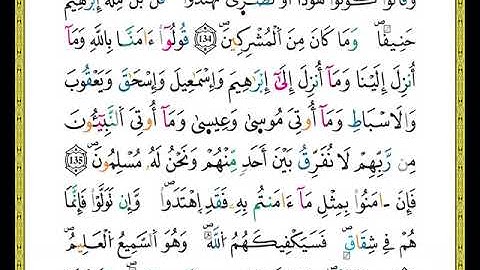 وَقَالُوا۟ كُونُوا۟ هُودًا أَوْ نَصَٰرَىٰ تَهْتَدُوا۟ۖ قُلْ بَلْ مِلَّةَ إِبْرَٰهِيمَ
حَنِيفًاۖ وَمَا كَانَ مِنَ ٱلْمُشْرِكِينَۖ ۝134 قُولُوٓا۟ ءَامَنَّا بِاللَّهِ وَمَآ
أُنزِلَ إِلَيْنَا وَمَآ أُنزِلَ إِلَىٰٓ إِبْرَٰهِيمَ وَإِسْمَٰعِيلَ وَإِسْحَٰقَ وَيَعْقُوبَ
وَالَاسْبَاطِ وَمَآ أُوتِيَ مُوسَىٰ وَعِيسَىٰ وَمَآ أُوتِيَ ٱلنَّبِيٓـُٔونَ
مِن رَّبِّهِمْ لَا نُفَرِّقُ بَيْنَ أَحَدٍ مِّنْهُمْ وَنَحْنُ لَهُۥ مُسْلِمُونَۖ ۝135
فَإِنَ ـامَنُوا۟ بِمِثْلِ مَآ ءَامَنتُم بِهِۦ فَقَدِ اِهْتَدَوا۟ۖ وَّإِن تَوَلَّوْا۟ فَإِنَّمَا
هُمْ فِي شِقَاقٍۖ فَسَيَكْفِيكَهُمُ ٱللَّهُۖ وَهُوَ ٱلسَّمِيعُ ٱلْعَلِيمُۖ